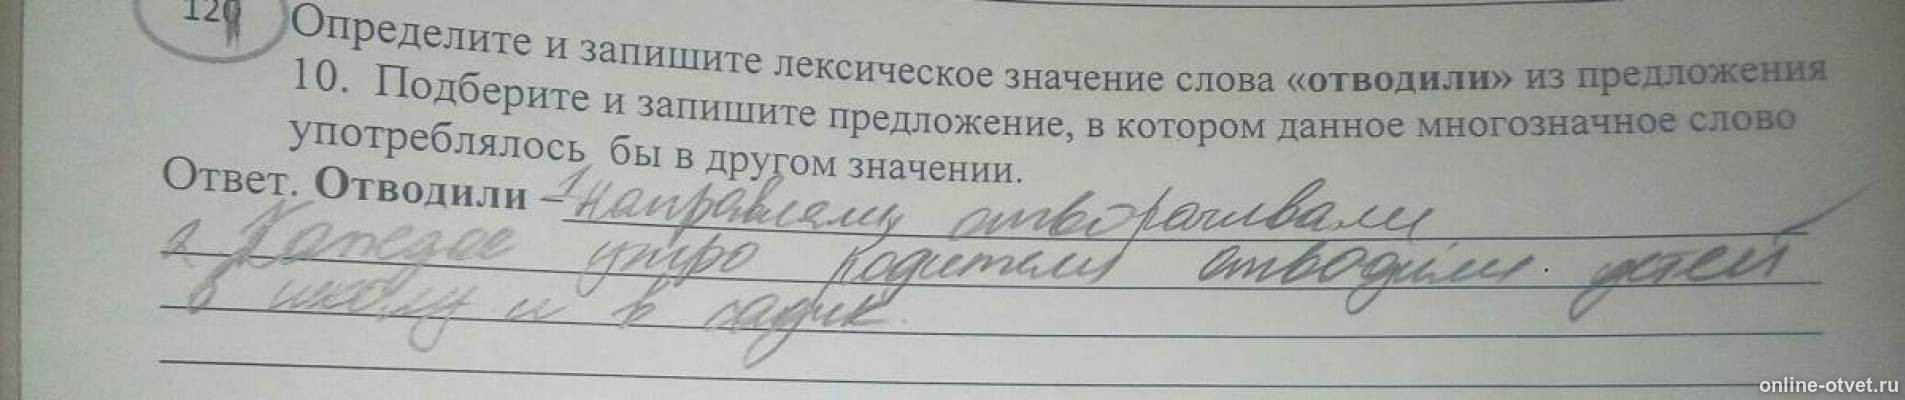 120 Определите и запишите лексическое значение слова «отводили» из предложения
10. Подберите и запишите предложение, в котором данное многозначное слово
употреблялось бы в другом значении.
Ответ. Отводили – 1 направляли отворачивали
2 Каждое утро родители отводили детей
в школу и в садик.
online-otvet.ru